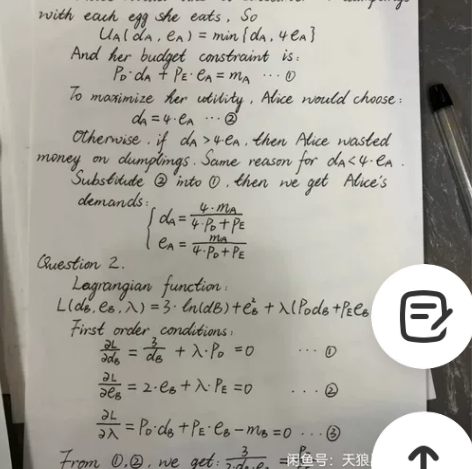 with each egg she eats, So
U_A(d_A, e_A) = min{d_A, 4e_A}
And her budget constraint is:
P_D·d_A + P_E·e_A = m_A ··· ①
To maximize her utility, Alice would choose:
d_A = 4·e_A ··· ②
Otherwise, if d_A > 4e_A, then Alice wasted
money on dumplings. Same reason for d_A < 4·e_A.
Substitute ② into ①, then we get Alice's
demands:
{ d_A = 4·m_A / 4·P_D + P_E
e_A = m_A / 4·P_D + P_E
Question 2.
Lagrangian function:
L(d_B, e_B, λ) = 3·ln(d_B) + e_B^2 + λ(P_D d_B + P_E e_B
First order conditions:
∂L/∂d_B = 3/d_B + λ·P_D = 0 ··· ①
∂L/∂e_B = 2·e_B + λ·P_E = 0 ··· ②
∂L/∂λ = P_D·d_B + P_E·e_B - m_B = 0 ··· ③
From ①,②, we get: 3/2·d_B·e_B =
闲鱼号：天狼